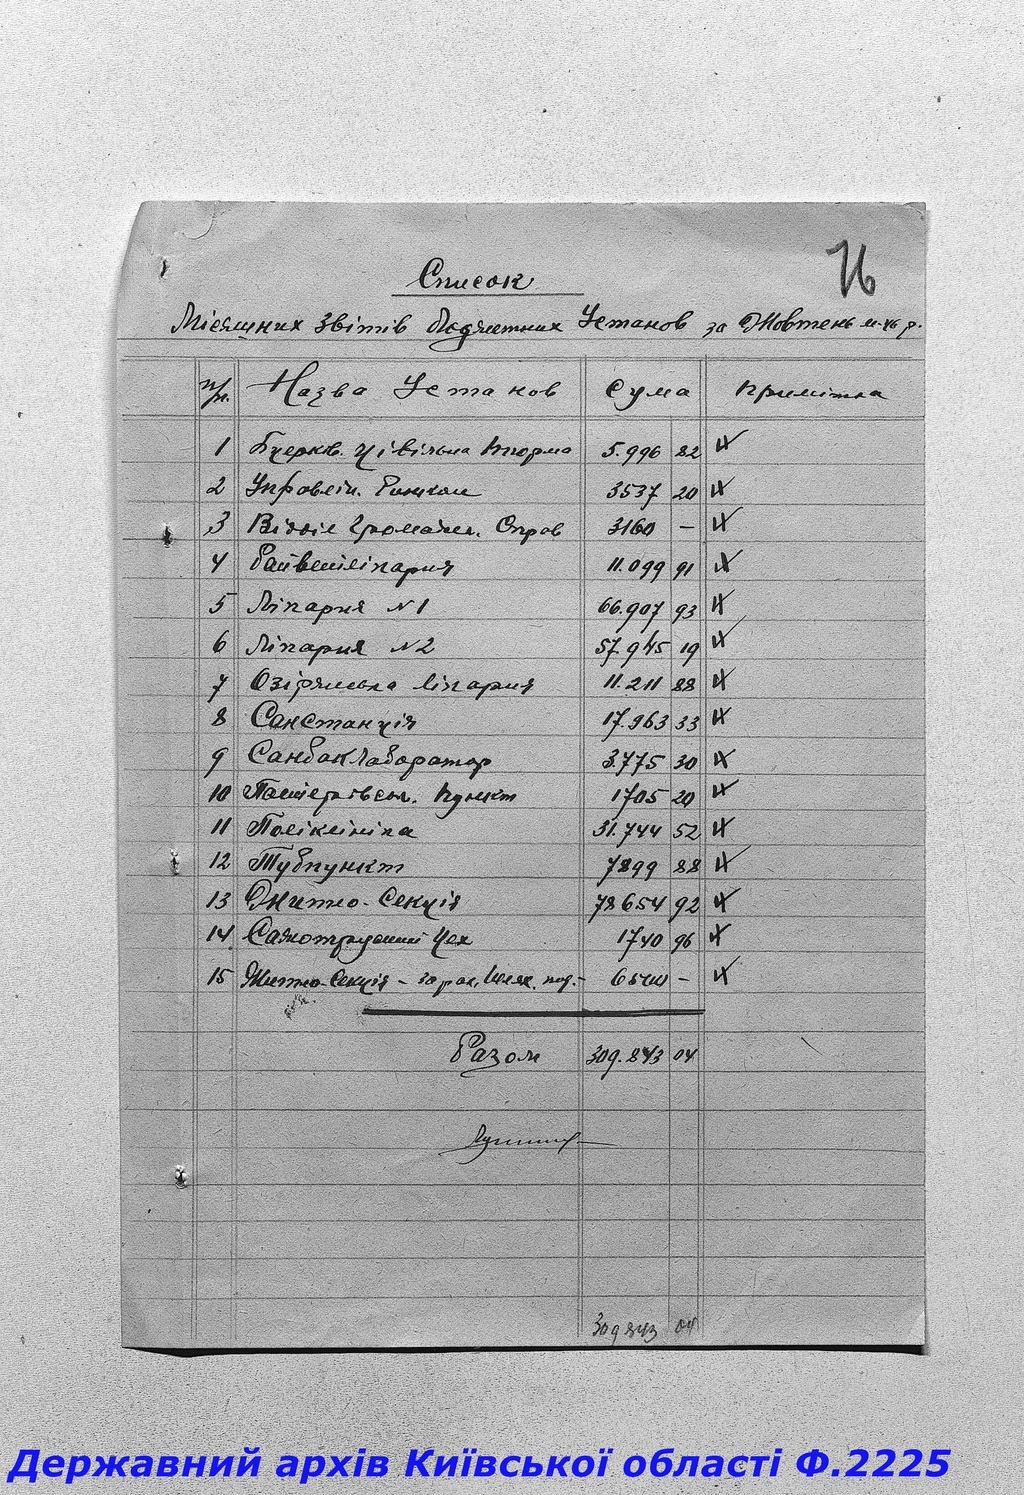 76
Список
Місячних Звітів Підзвітних Установ за Жовтень м-ць р.
п/п. Назва Установ Сума Примітка
1 Цівільна Тюрма 5.996 82
2 Управлін. 3537 20
3 Відділ Громадськ. Справ 3160 –
4 Райветлікарня 11.099 91
5 Лікарня №1 66.907 93
6 Лікарня №2 57.945 19
7 Озірянська лікарня 11.211 88
8 Санстанція 17.963 33
9 СанбакЛаборатор 3.775 30
10 Пастерівськ. Пункт 1705 20
11 Поліклініка 31.744 52
12 Тубпункт 7899 88
13 Житло-Секція 78654 92
14 Цех 1740 96
15 Житло-Секція – за рах. –
Разом 309.843 04
309843 04
Державний архів Київської області Ф.2225